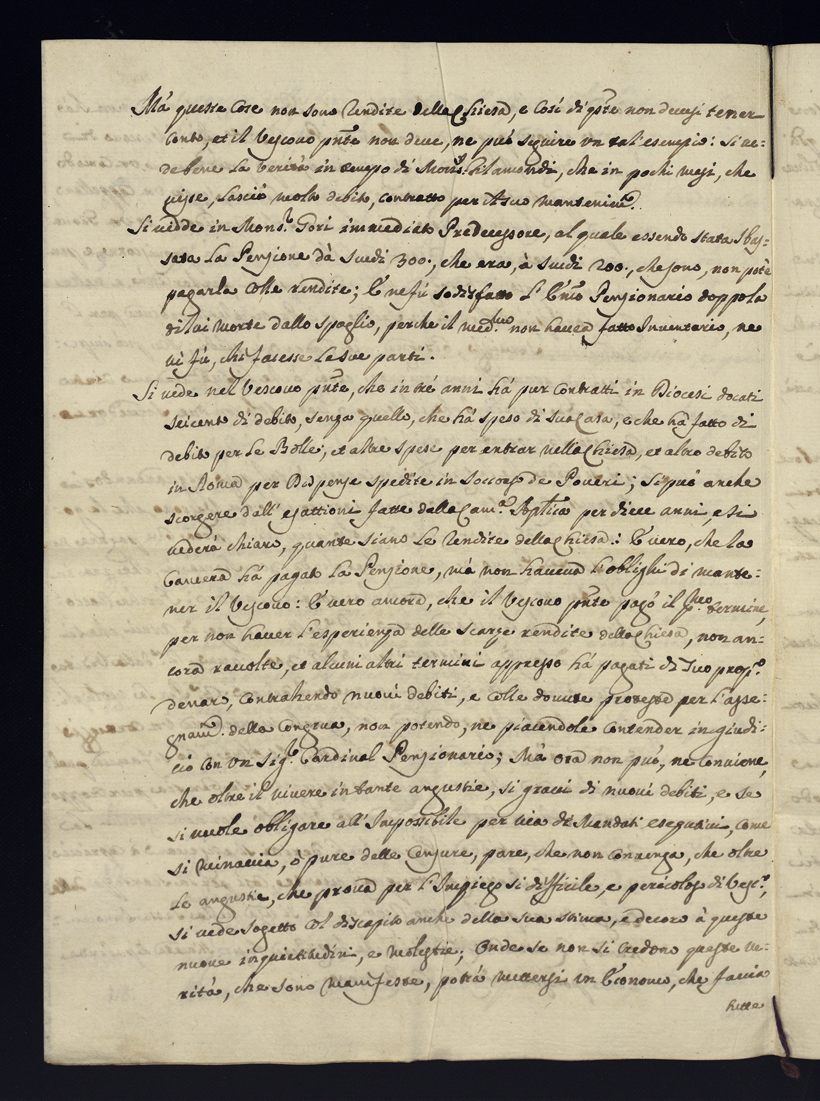 Mà queste Cose non sono Rendite della Chiesa, e Così di qste non devesi tener
Conto, et il Vescovo pnte non deve, ne può seguire un tal'esempio: Si ve-
de bene la verità in tempo di Mons.r Filamondi, che in pochi mesi, che
visse, lasciò molto debito, contratto per il suo mantenim.to
Si vidde in Mons.r Gori immediato Predecessore, al quale essendo stata sbas-
sata la Pensione dà Scudi 300., che era, à Scudi 200., che sono, non potè
pagarla Colle rendite; E ne fù sodisfatto l'E'mo Pensionario doppo la
di lui morte dallo spoglio, perche il med.mo non havea fatto Inventario, ne
vi fù, chi facesse le sue parti.
Si vede nel Vescovo pnte, che in trè anni hà pur Contratti in Diocesi docati
seicento di debito, senza quello, che hà speso di sua Casa, e che hà fatto di
debito per le Bolle, et altre spese per entrar nella Chiesa, et altro debito
in Roma per Dispense spedite in Soccorso de Poveri; Si può anche
scorgere dall'esattioni fatte dalla Cam.a Aptlica per diece anni, e si
vederà chiaro, quante siano le rendite della Chiesa: E' vero, che la
Camera hà pagato la Pensione, mà non haveva l'oblighi di mante-
ner il Vescovo: E' vero ancora, che il Vescovo pnte pagò il pmo termine,
per non haver l'esperienza delle scarze rendite della Chiesa, non an-
cora raccolte, et alcuni altri termini appresso hà pagati di suo prop.o
denaro, Contrahendo nuovi debiti, e colle dovute proteste per l'asse-
gnam.to della Congrua, non potendo, ne piacendole Contender in giudi-
cio Con un Sig.r Cardinal Pensionario; Mà ora non può, ne conviene,
che oltre il vivere in tante angustie, si gravi di nuovi debiti, e se
si vuole obligare all'Impossibile per via di Mandati esequtivi, come
si minaccia, ò pure delle Censure, pare, che non Convenga, che oltre
le angustie, che prova per l'Impiego si difficile, e pericoloso di Vesc.o,
si vede sogetto Col discapito anche della sua stima, e decoro à queste
nuove inquietitudini, e molestie; Onde se non si Credono queste ve-
rità, che sono manifeste, potrà mettersi in Economo, che faccia
tutte